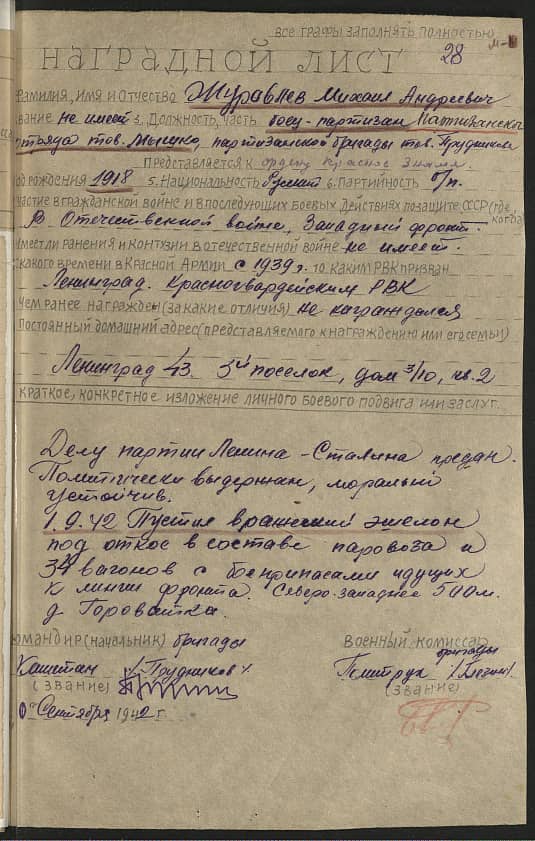 все графы заполнять полностью
НАГРАДНОЙ ЛИСТ 28
Фамилия, имя и отчество Журавлев Михаил Андреевич
звание не имеет 3. Должность, часть боец-партизан Партизанского
отряда тов. партизанской бригады тов. Прудникова
Представляется к ордену Красное Знамя.
год рождения 1918 5. Национальность Русский 6. Партийность б/п.
участие в гражданской войне и в последующих боевых действиях по защите СССР (где, когда)
В Отечественной войне, Западный фронт.
имеет ли ранения и контузии в отечественной войне не имеет.
с какого времени в Красной Армии с 1939 г. 10. каким РВК призван
Ленинград. Красногвардейским РВК
чем ранее награжден (за какие отличия) не награждался
постоянный домашний адрес (представляемого к награждению или его семьи)
Ленинград 43. 5й поселок, дом 3/10, кв. 2
краткое, конкретное изложение личного боевого подвига или заслуг.
Делу партии Ленина-Сталина предан.
Политически выдержан, морально
устойчив.
1.9.42 Пустил вражеский эшелон
под откос в составе паровоза и
34 вагонов с боеприпасами идущих
к линии фронта. Северо-западнее 500 м.
д.
командир (начальник) бригады военный комиссар бригады
Капитан /Прудников/ Политрук
(звание) (звание)
Сентября 1942 г.